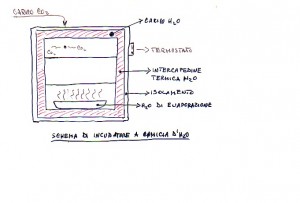 CARICO CO₂
CARICO H₂O
CO₂
CO₂
TERMOSTATO
INTERCAPEDINE
TERMICA H₂O
ISOLAMENTO
H₂O DI EVAPORAZIONE
SCHEMA DI INCUBATORE A CAMICIA D'H₂O